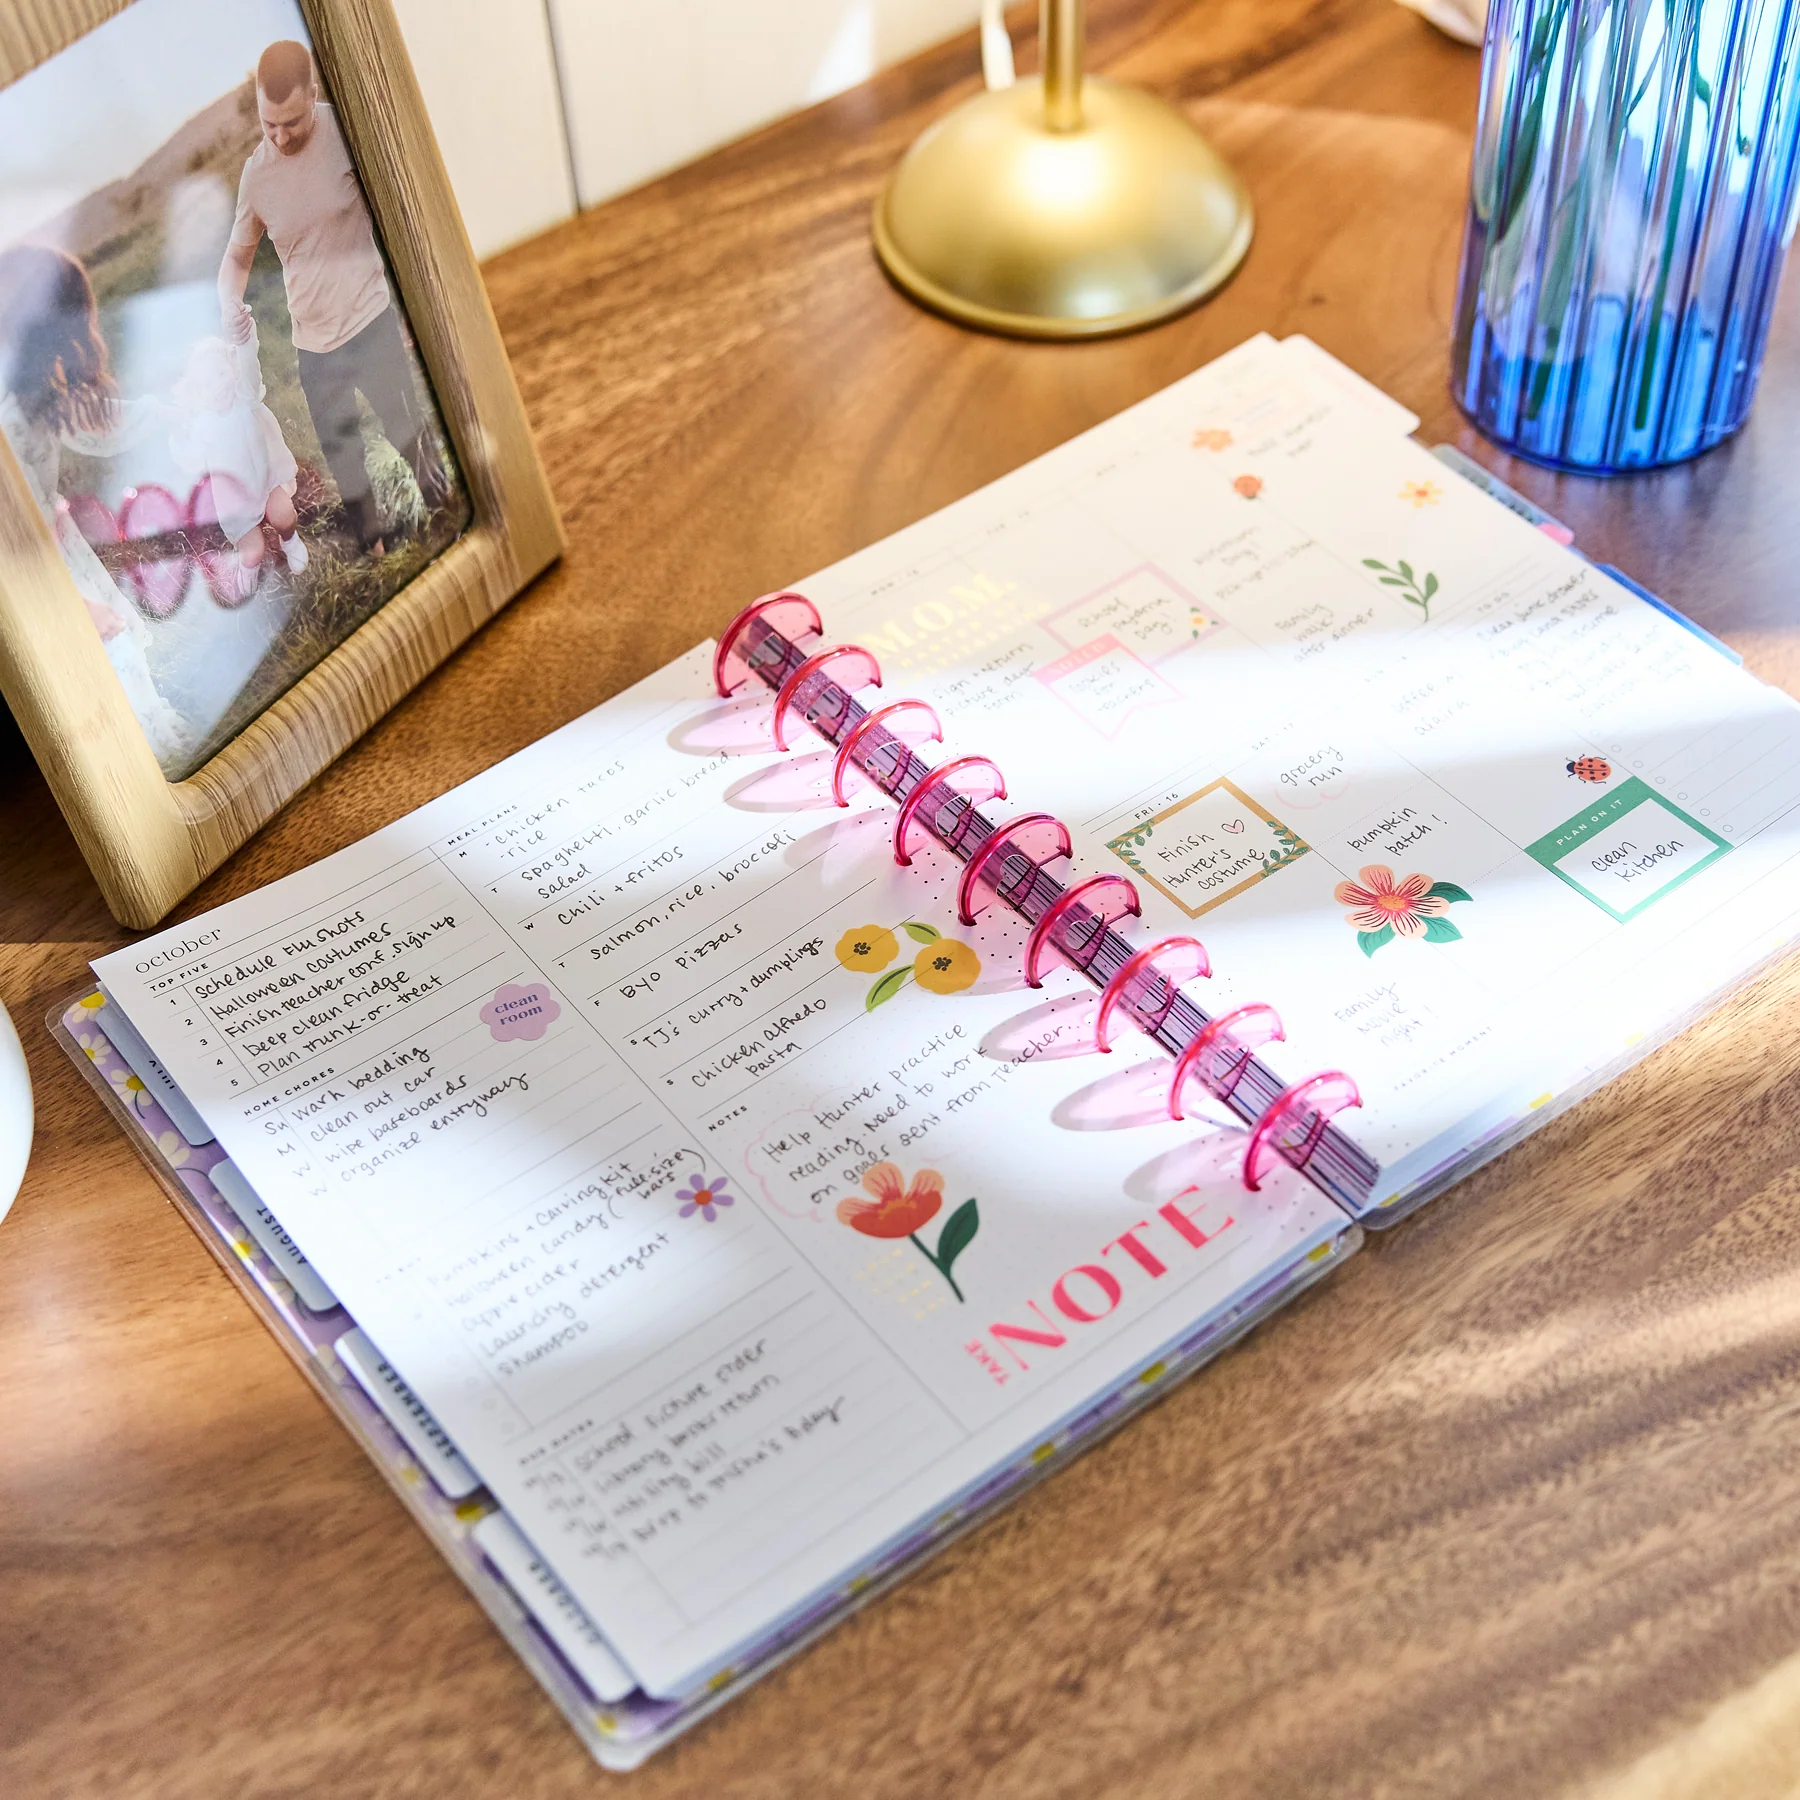 october
TOP FIVE
1 Schedule Flu Shots
2 Halloween costumes
3 Finish teacher conf. sign up
4 Deep clean fridge
5 Plan trunk-or-treat
clean
room
HOME CHORES
Su wash bedding
M clean out car
W wipe baseboards
organize entryway
pumpkins + carving kit
Halloween candy (full-size
bars)
apple cider
Laundry detergent
shampoo
school picture order
library books return
utility bill
MEAL PLANS
M - chicken tacos
- rice
T spaghetti, garlic bread,
salad
W chili + fritos
T salmon, rice, broccoli
F BYO Pizzas
S TJ's curry + dumplings
S chicken alfredo
pasta
NOTES
Help Hunter practice
reading. Need to work
on goals sent from Teacher...
TAKE
NOTE
JULY
AUGUST
SEPTEMBER
OCTOBER
M.O.M.
sign + return
picture day
form
School
pajama
day
cookies
for
teachers
Family
walk
after dinner
FRI · 16
Finish
Hunter's
costume
SAT · 17
grocery
run
pumpkin
patch!
Family
Movie
night!
coffee w/
TO DO
PLAN ON IT
clean
kitchen
FAVORITE MOMENT